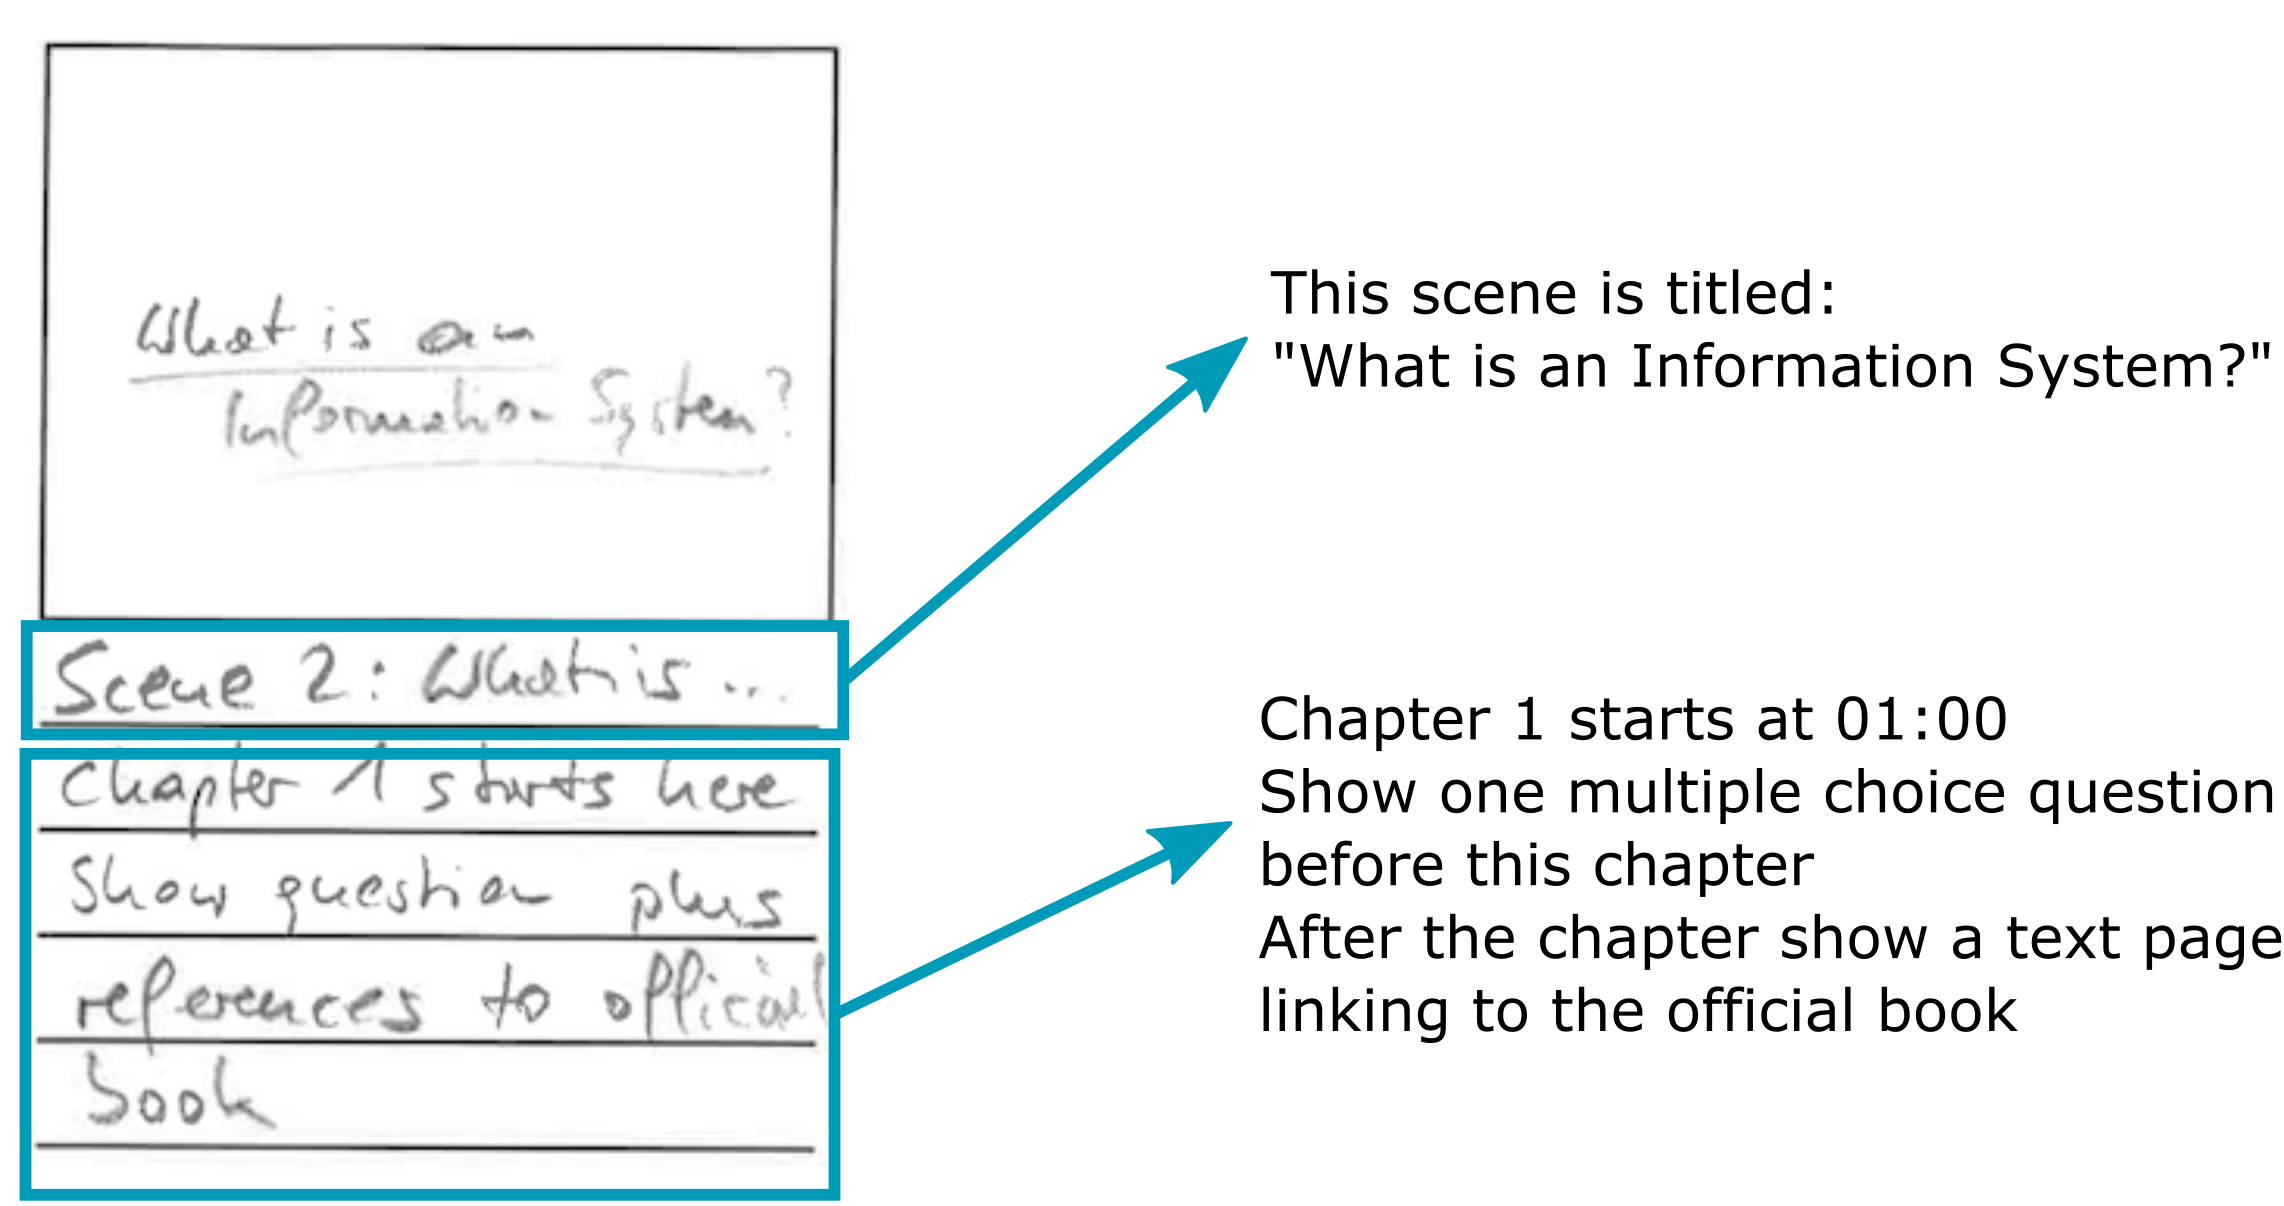 What is an
Information System?
Scene 2: What is ...
Chapter 1 starts here
Show question plus
references to official
book
This scene is titled:
"What is an Information System?"
Chapter 1 starts at 01:00
Show one multiple choice question
before this chapter
After the chapter show a text page
linking to the official book